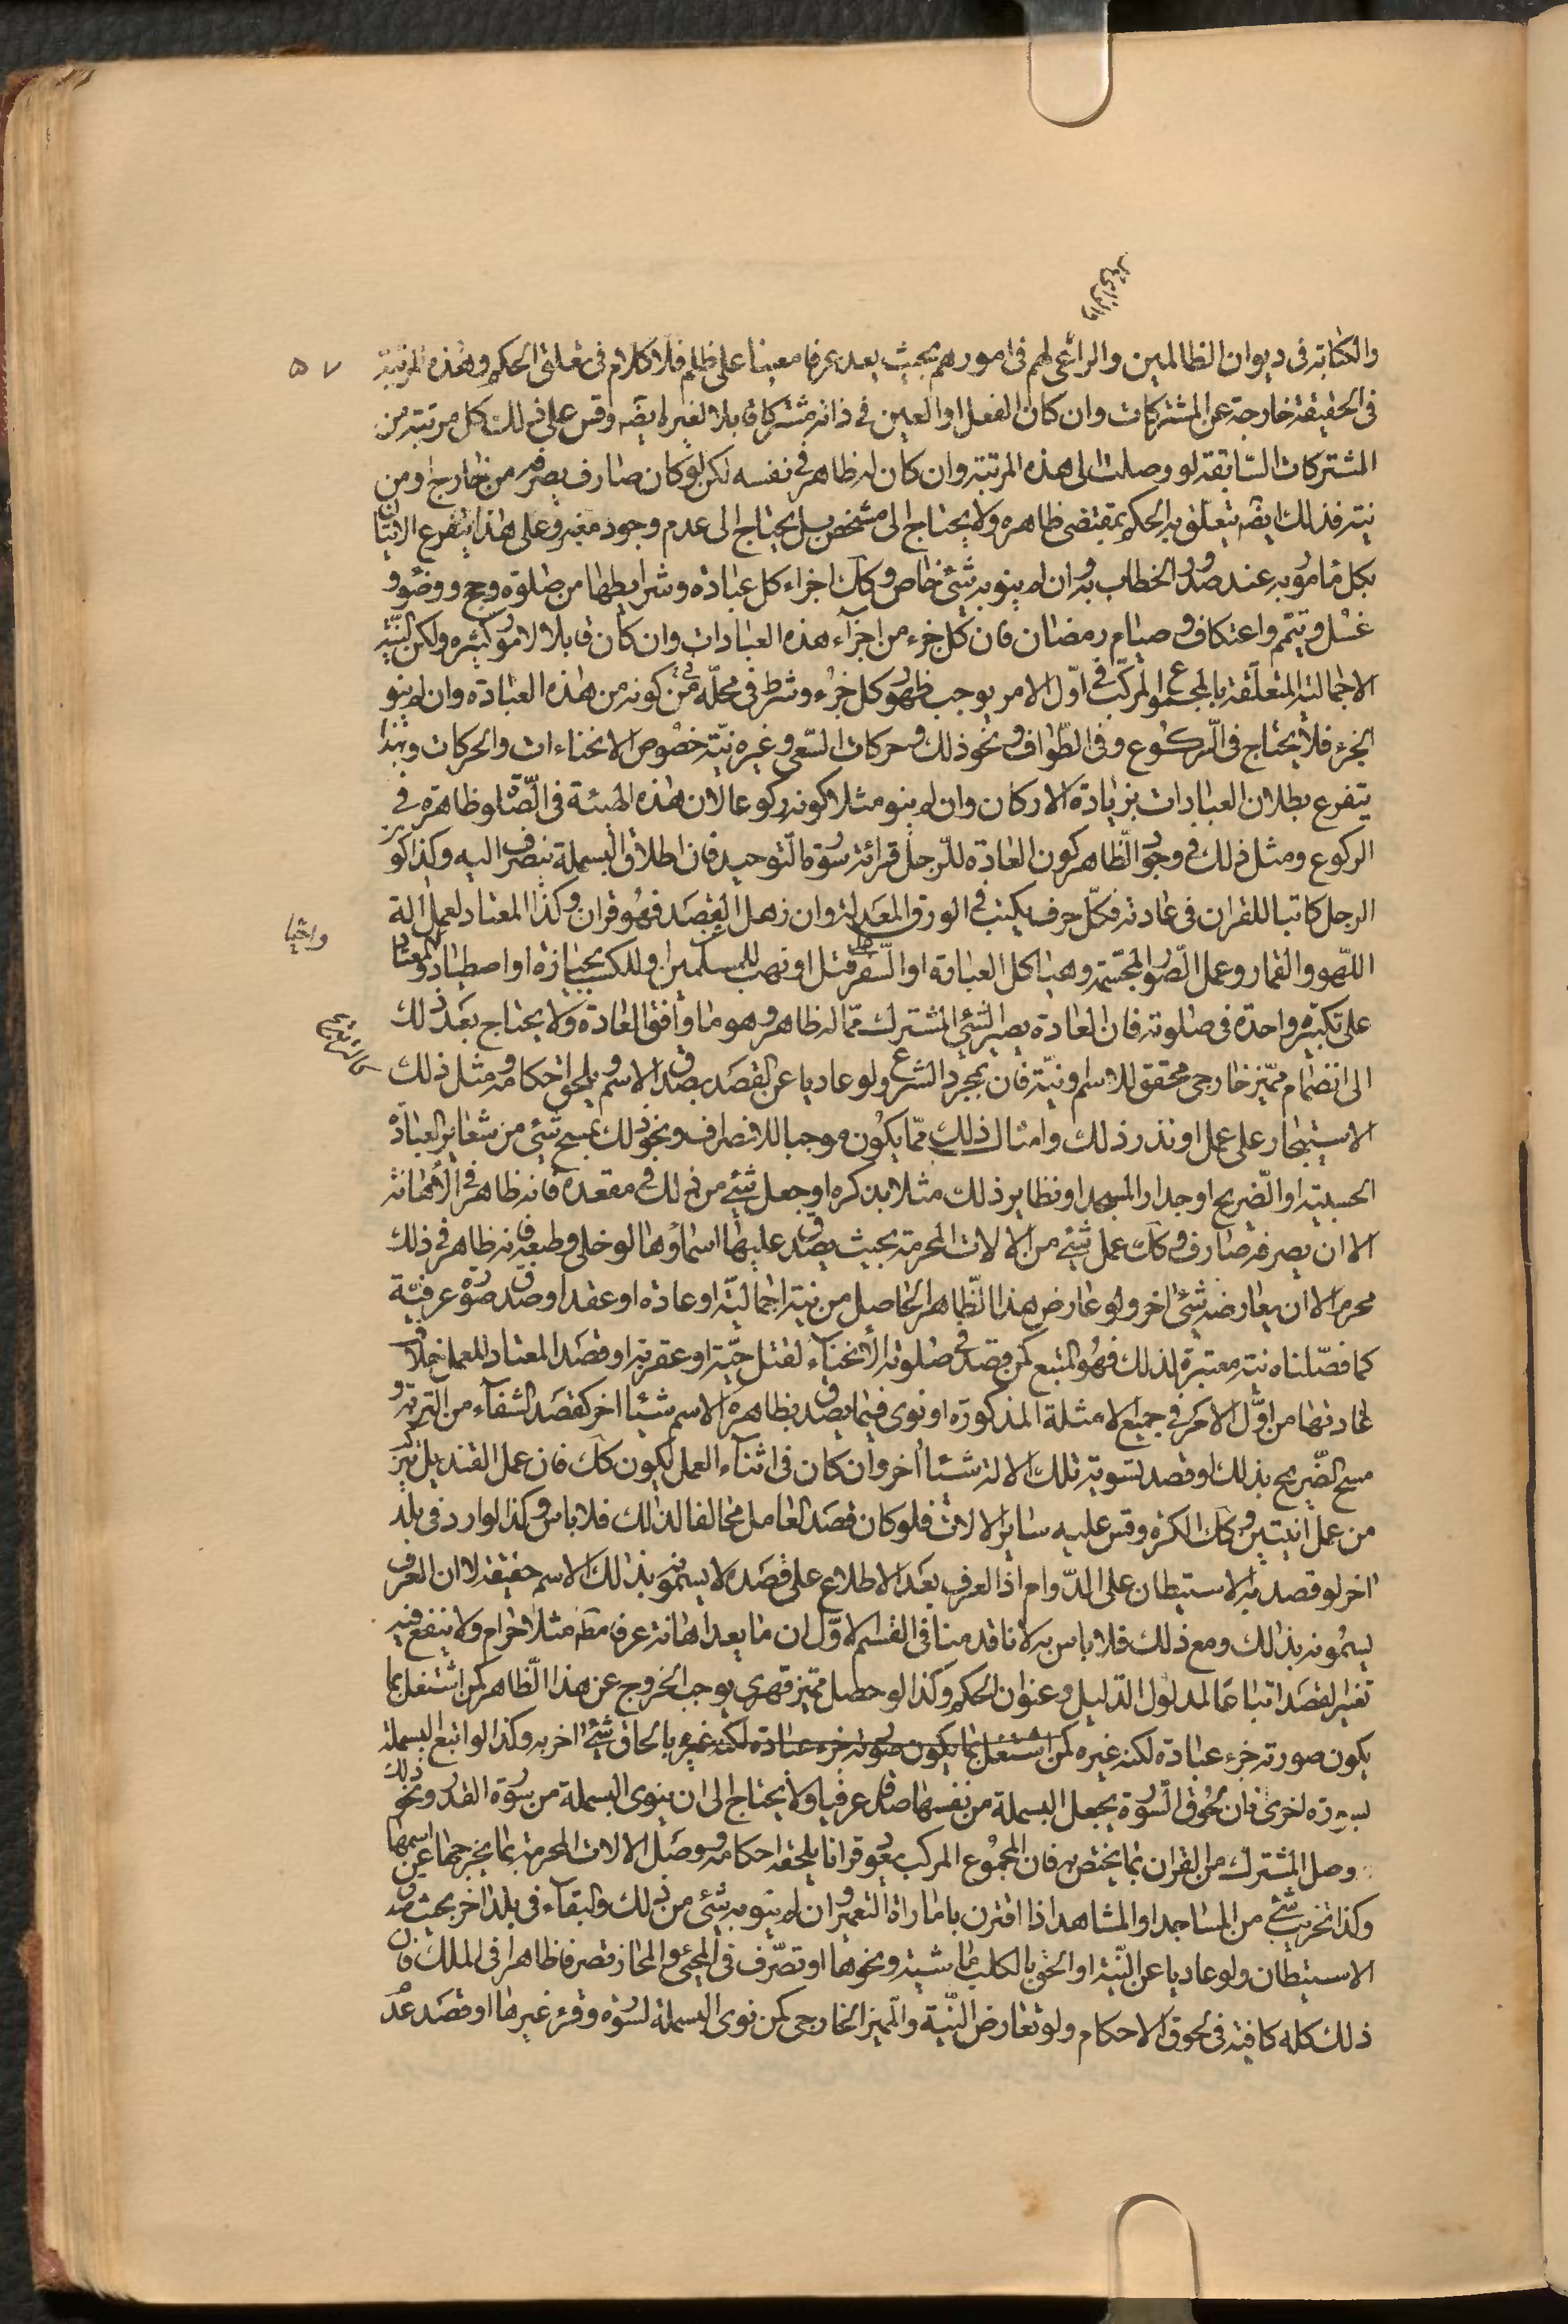 ٥٧
والكتابة فى ديوان الظالمين والراعى لهم فى امورهم بحيث يعد عرفا معينا على ظلم فلا كلام فى تعلق الحكم وهذه المرتبة
فى الحقيقة خارجة عن المشتركات وان كان الفعل او العين فى ذاته مشتركا قابلا لغيره ايضه وقس على ذلك كل مرتبة من
المشتركات السابقة لو وصلت الى هذه المرتبة وان كان له ظاهر فى نفسه لكن لو كان صارف يصرفه من خارج او من
نيته فذلك ايضه يتعلق به الحكم بمقتضى ظاهره ولا يحتاج الى مشخص بل يحتاج الى عدم وجود مغير وعلى هذا يتفرع الاتيان
بكل مامور به عند صدور الخطاب به وان لم ينو به شئ خاص وكك اجزاء كل عبادة وشرايطها من صلوة وحج ووضوء و
غسل وتيمم واعتكاف وصيام رمضان فان كل جزء من اجزاء هذه العبادات وان كان قابلا لامور كثيره ولكن النية
الاجمالية المتعلقة بالمجموع المركب فى اول الامر يوجب ظهور كل جزء وشرط فى محله فى كونه من هذه العبادة وان لم ينو
الجزء فلا يحتاج فى الركوع وفى الطواف ونحو ذلك وحركات السعى وغيره نية خصوص الانحناءات والحركات وبهذا
يتفرع بطلان العبادات بزيادة الاركان وان لم ينو مثلا كونه ركوعا لان هذه الهيئة فى الصلوة ظاهرة فى
الركوع ومثل ذلك فى وجود الظاهر كون العادة للرجل قرائة سورة التوحيد فان اطلاق البسملة ينصرف اليه وكذا كون
الرجل كاتبا للقران فى عادته فكل حرف يكتب فى الورق المعد له وان ذهل القصد فهو قران وكذا المعتاد لعمل الة
اللهو والقمار وعمل الصور المجسمة وهياكل العبادة او السفر قتل او نهب للمسلمين او للكسب بحيازة او اصطياد والمعتاد
على تكبيرة واحدة فى صلوته فان العادة يصير الشئ المشترك مما له ظاهر وهو ما وافق العادة ولا يحتاج بعد ذلك
الى انضمام مميز خارجى محقق للاسم او نية فان بمجرد الشرع ولو عاديا عن القصد يصدق الاسم ويلحق احكامه ومثل ذلك
الاستيجار على عمل او نذر ذلك وامثال ذلك مما يكون موجبا للانصراف ونحو ذلك مسح شئ من شعاير العبادة
الحسينية او الضريح او جدار المسجد او نظاير ذلك مثلا بذكره او جعل شئ من ذلك فى مقعده فانه ظاهر فى الاهانة
الا ان يصرفه صارف وكك عمل شئ من الالات المحرمة بحيث يصدق عليها اسماؤها لو خلى وطبعه فانه ظاهر فى ذلك
محرم الا ان يعارضه شئ اخر ولو عارض هذا الظاهر الحاصل من نية اجمالية او عادة او عقد او صدق صورة عرفية
كما فصلناه نية معتبرة لذلك فهو المتبع كمن قصد فى صلوته الانحناء لقتل حية او عقرب او قصد المعتاد للعمل خلاف
عادتها من اول الامر فى جميع الامثلة المذكورة او نوى فيما يصدق بظاهره الاسم شيئا اخر كقصد الشفاء من التربة و
مسح الضريح بذلك او قصد تسوية تلك الالة شيئا اخر وان كان فى اثناء العمل يكون كك فان عمل القنديل
من عمل وكك الكرة وقس عليه ساير الالات فلو كان قصد العامل مخالفا لذلك فلا باس وكذا الوارد فى بلد
اخر لو قصد به الاستيطان على الدوام اذ العرف بعد الاطلاع على قصده لا يسمونه بذلك الاسم حقيقة الا ان العرف
يسمونه بذلك ومع ذلك فلا باس به لانا قدمنا فى القسم الاول ان ما يعد اهانة عرفا مثلا حرام ولا ينفع فيه
تغير القصد اتباعا لمدلول الدليل وعنوان الحكم وكذا لو حصل مميز قهرى يوجب الخروج عن هذا الظاهر كمن اشتغل بما
يكون صورته جزء عبادة لكنه غيره كمن اشتغل بما يكون صورته جزء عبادة لكنه غيره بالحاق شئ اخر به وكذا لو اتبع البسملة
بسورة اخرى فان لحوق السورة يجعل البسملة من نفسها صدقا عرفيا ولا يحتاج الى ان ينوى البسملة من سورة القدر ونحو ذلك
وصل المشترك من القران بما يختص به فان المجموع المركب يعد قرانا يلحقه احكامه ووصل الالات المحرمة بما يخرجها عن اسمها
وكذا تخريب شئ من المساجد او المشاهد اذا اقترن بامارات التعمير وان لم ينو به شئ من ذلك والبقاء فى بلد اخر بحيث صدق
الاستيطان ولو عاديا عن النية او الحق بالكلب ماشية ونحوها او تصرف فى المجئ والمحاز تصرفا ظاهرا فى الملك فان
ذلك كله كافية فى لحوق الاحكام ولو تعارض النية والمميز الخارجى كمن نوى البسملة لسورة وقرء غيرها او قصد عدم